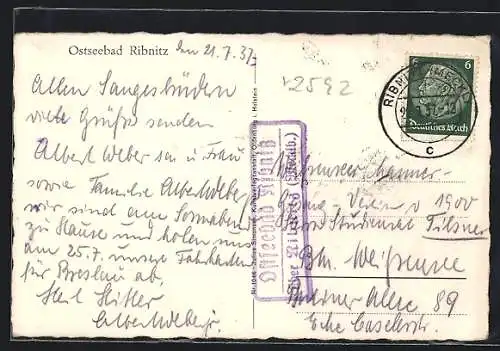 Ostseebad Ribnitz den 21.7.37.
Allen Sangesbrüdern
viele Grüße senden
Albert Weber sen u Frau
sowie Familie Albert Weber
wir sind am Sonnabend
zu Hause und holen uns
am 25.7. unsere Fahrkarten
für Breslau ab.
Heil Hitler
Albert Weber jr.
2592
6 6
Deutsches Reich
RIBNITZ (MECKL)
c
Ostseebad Ribnitz
über
Männer-
Verein v 1900
Studienrat
Bln. Weißensee
Allee 89
Ecke